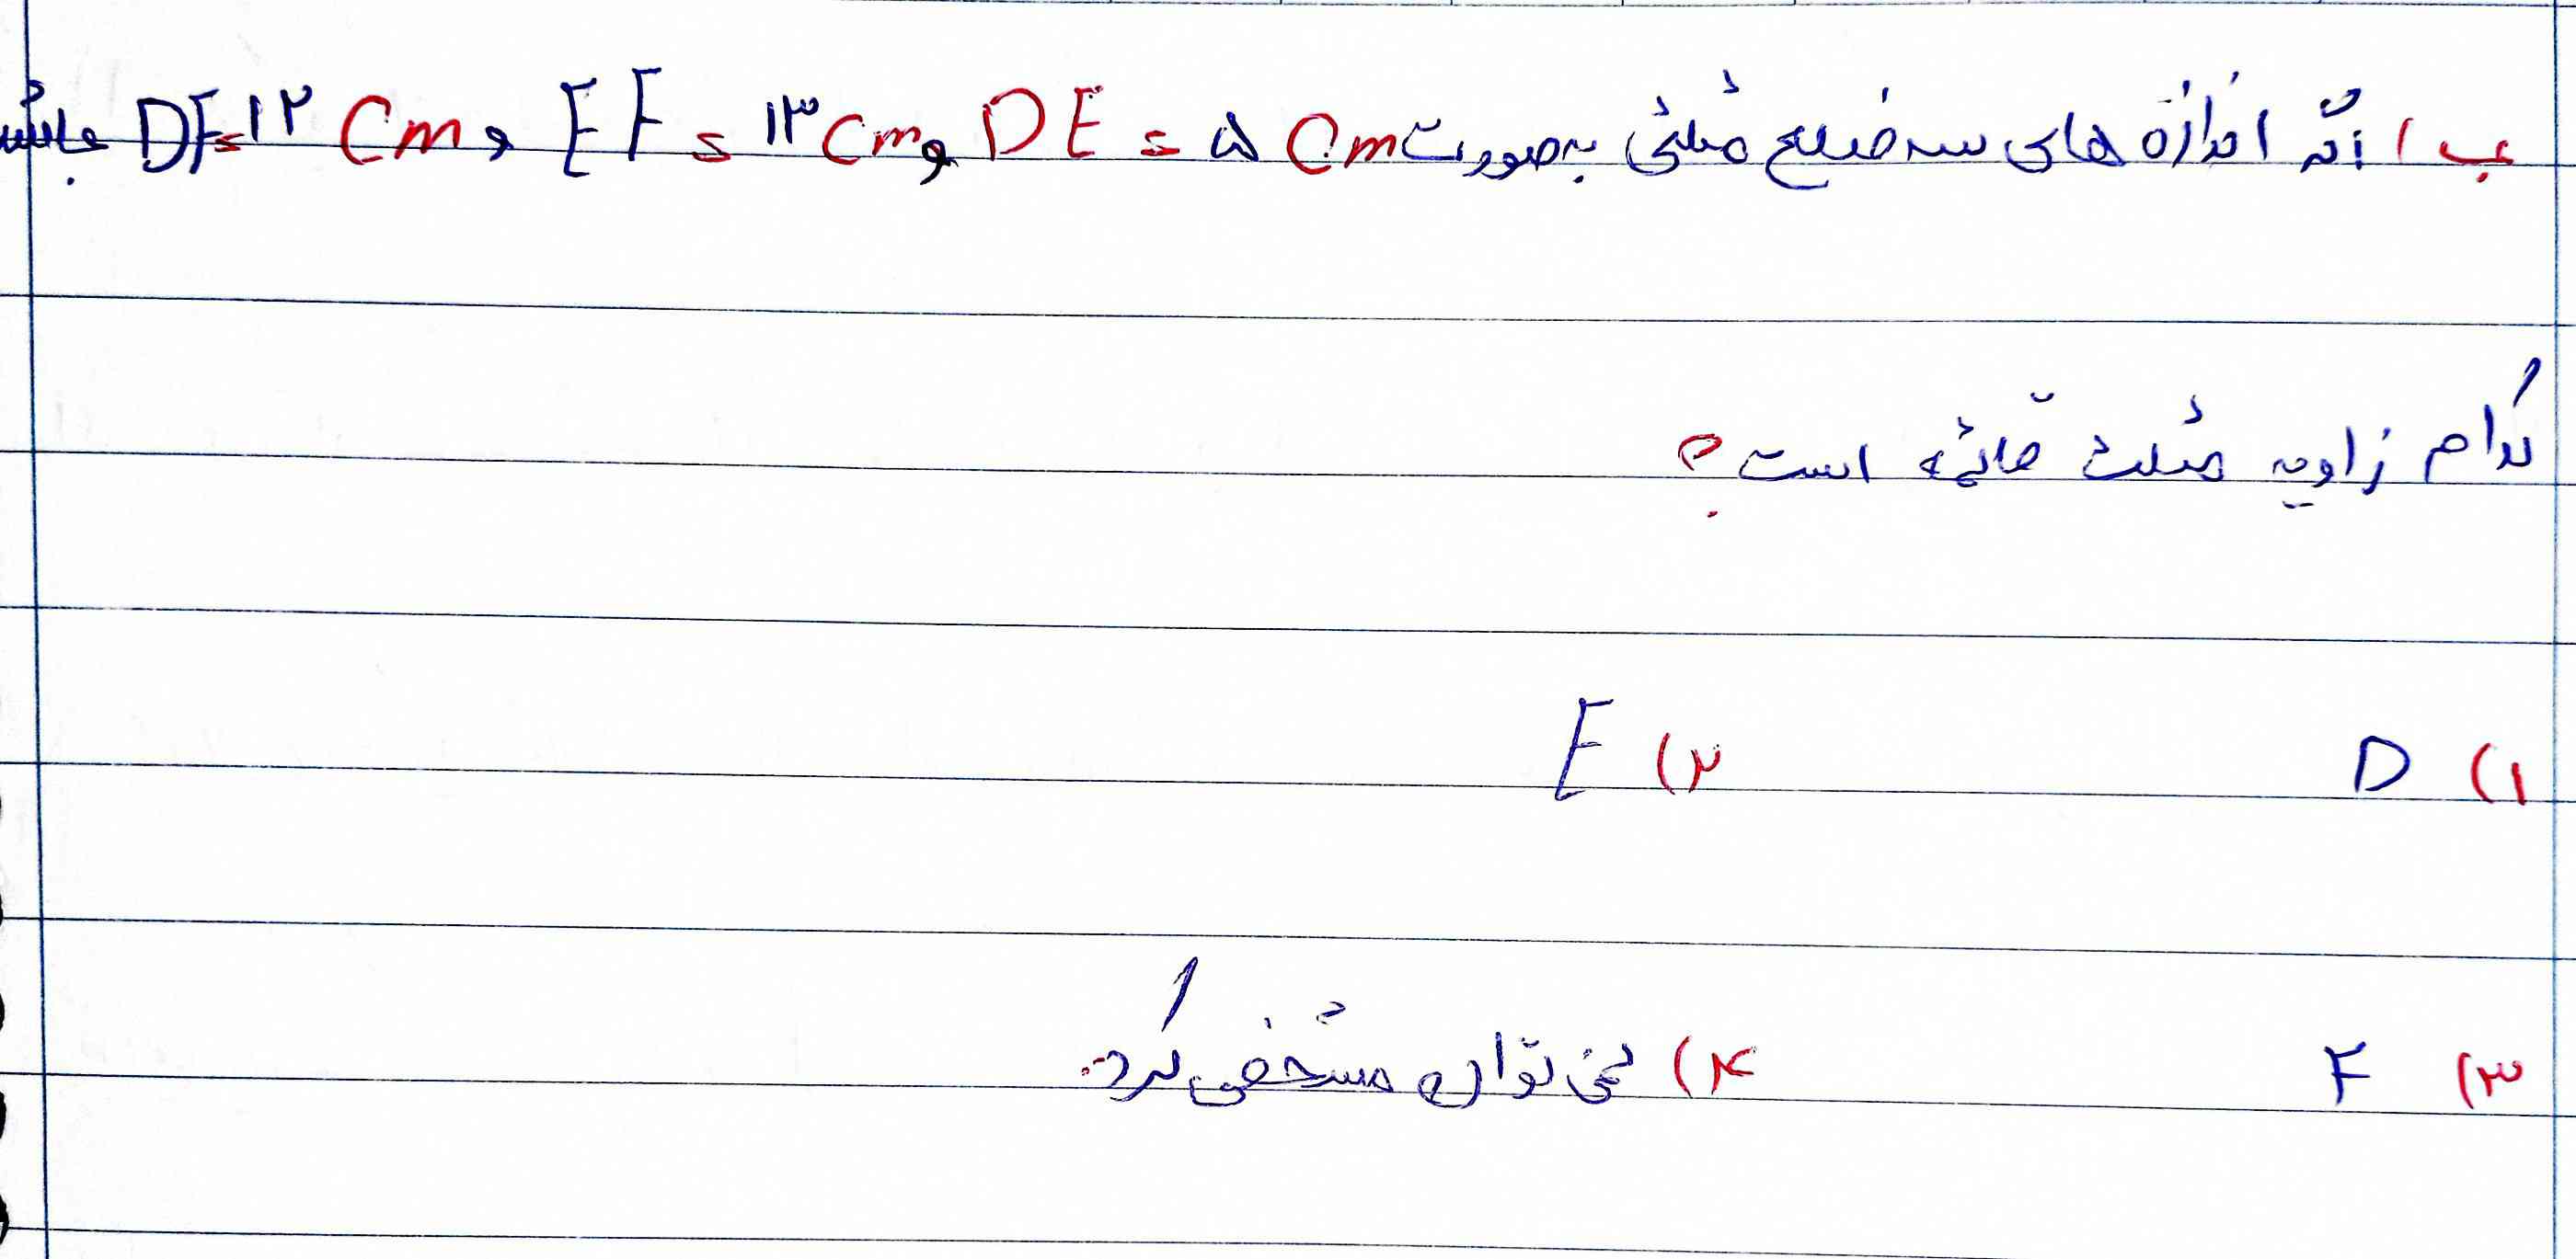 ب) اگر اندازه های سه ضلع مثلثی به صورت DE = ۵ Cm و EF = ۱۳ Cm و DF = ۱۲ Cm باشد
کدام زاویه مثلث قائمه است؟
۱) D ۲) E
۳) F ۴) نمی توان مشخص کرد.